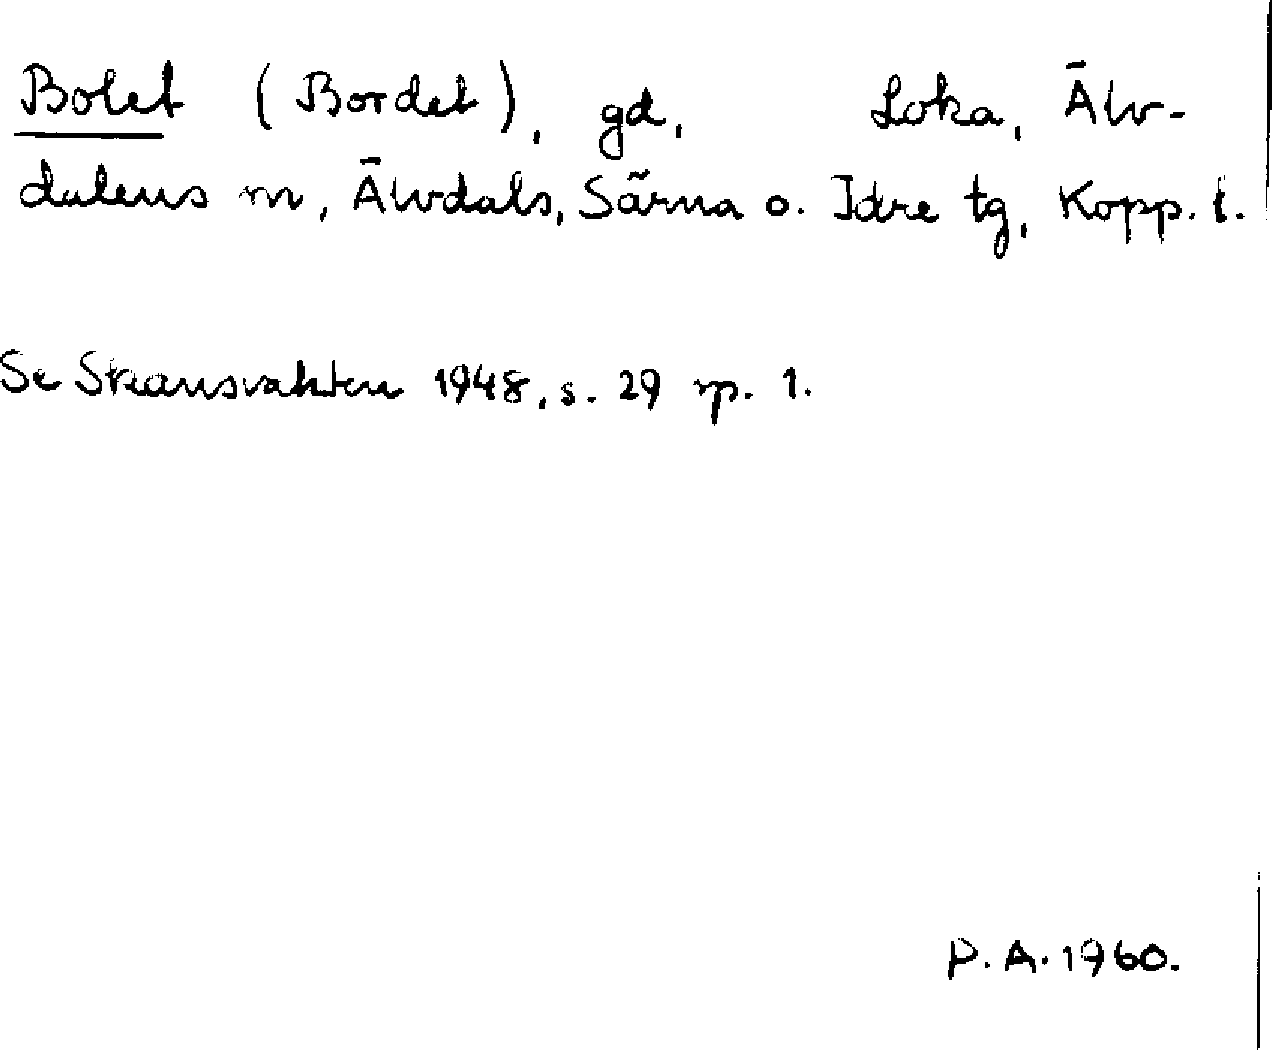 Bolet (Bordet), gd, Loka, Älv-
dalens m, Älvdals, Särna o. Idre tg, Kopp. l.
Se Skansvakten 1948, s. 29 sp. 1.
P.A. 1960.